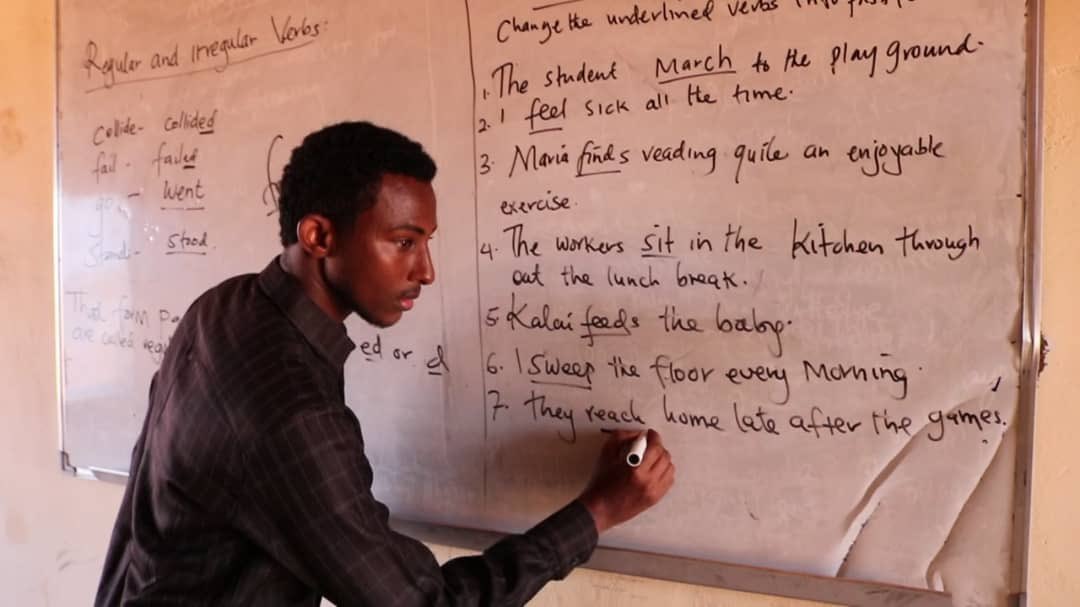 Regular and irregular Verbs:
Collide- collided
fail - failed
go - Went
Stand- stood.
That form
are called
ed or d
Change the underlined verbs into
1. The student March to the play ground.
2. I feel sick all the time.
3. Maria finds reading quite an enjoyable
exercise.
4. The workers sit in the Kitchen through
out the lunch break.
5. Kalai feeds the baby.
6. I Sweep the floor every Morning.
7. They reach home late after the games.